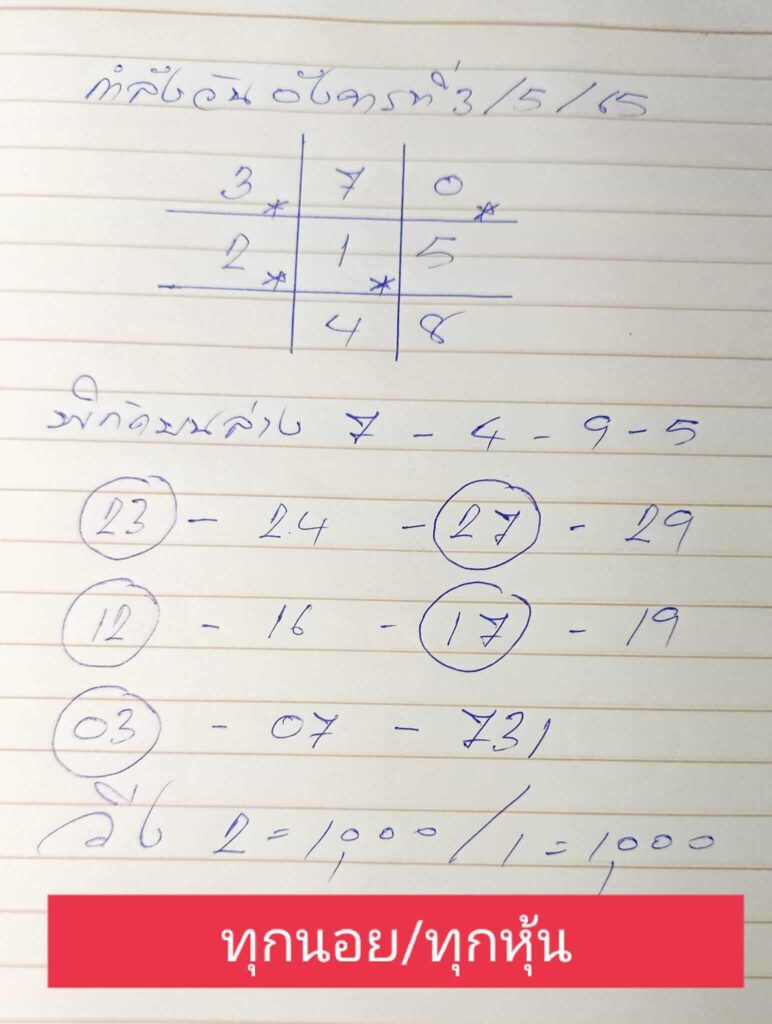 กำลังวัน อังคารที่ 3/5/65
3* 7 0*
2* 1* 5
4 8
พิกัดบนล่าง 7 - 4 - 9 - 5
23 - 24 - 27 - 29
12 - 16 - 17 - 19
03 - 07 - 731
วิ่ง 2 = 1,000 / 1 = 1,000
ทุกนอย/ทุกหุ้น